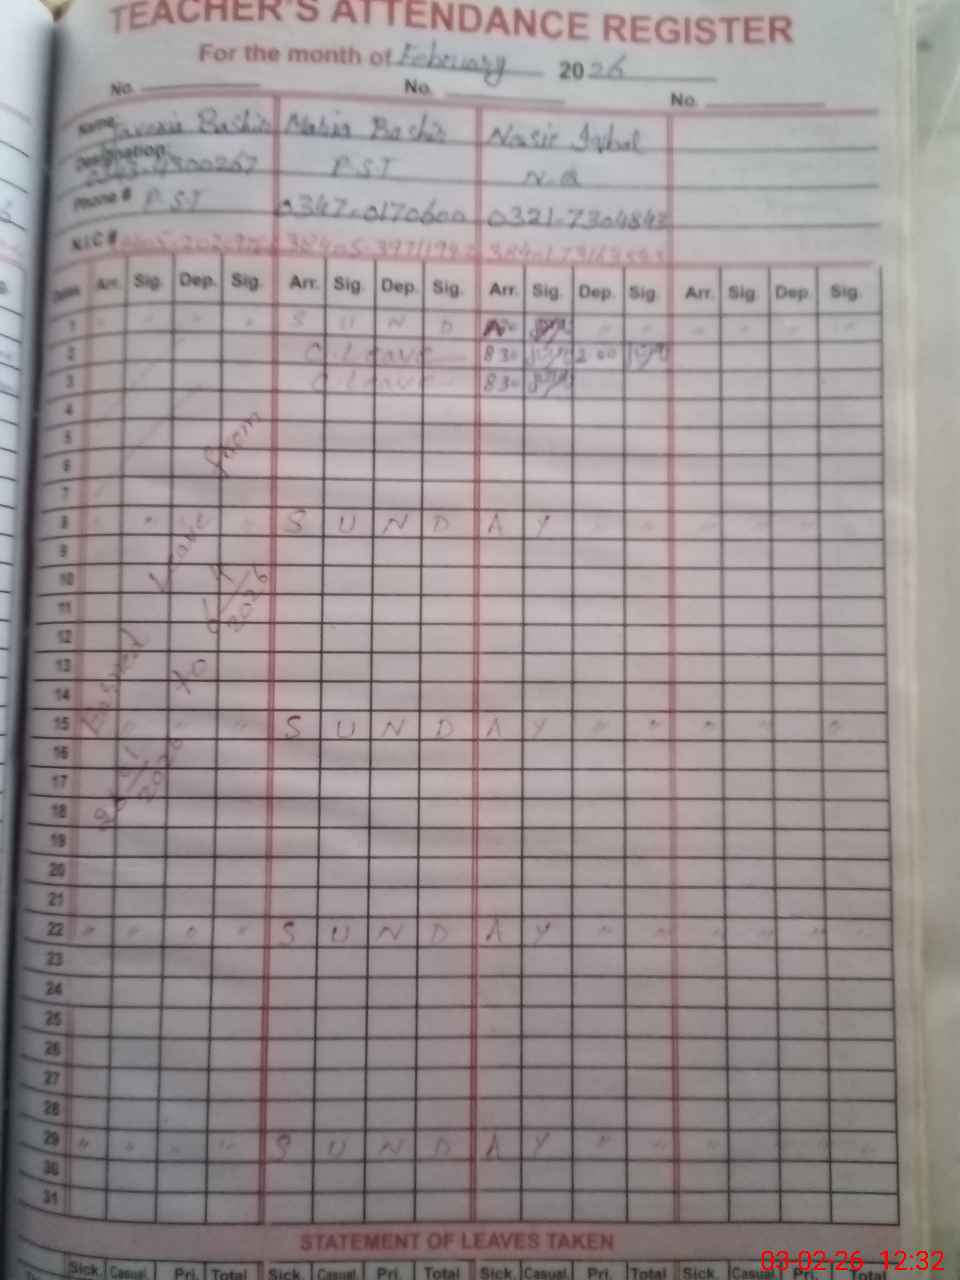 TEACHER'S ATTENDANCE REGISTER
For the month of February 2026
No. No. No.
Name: Bashir Bashir Nasir Iqbal
Designation: P.S.T N.Q
Phone # P.S.T 0347-0170600 0321-7304843
N.I.C #
Dates Arr. Sig. Dep. Sig. Arr. Sig. Dep. Sig. Arr. Sig. Dep. Sig. Arr. Sig. Dep. Sig.
1 " " " " S U N D A " " " " " "
2 C.Leave 830 2 00
3 C.Leave 830
4
5
6
7
8 " " " " S U N D A Y " " " " "
9
10
11
12
13
14
15 " " " S U N D A Y " " " " "
16
17
18
19
20
21
22 " " " " S U N D A Y " " " " " "
23
24
25
26
27
28
29 " " " " S U N D A Y " " " " " "
30
31
Leave from
2026
to
2026
STATEMENT OF LEAVES TAKEN
Sick Casual Pri. Total Sick. Casual. Pri. Total Sick. Casual. Pri. Total Sick. Casual. Pri. Total
03-02-26 12:32